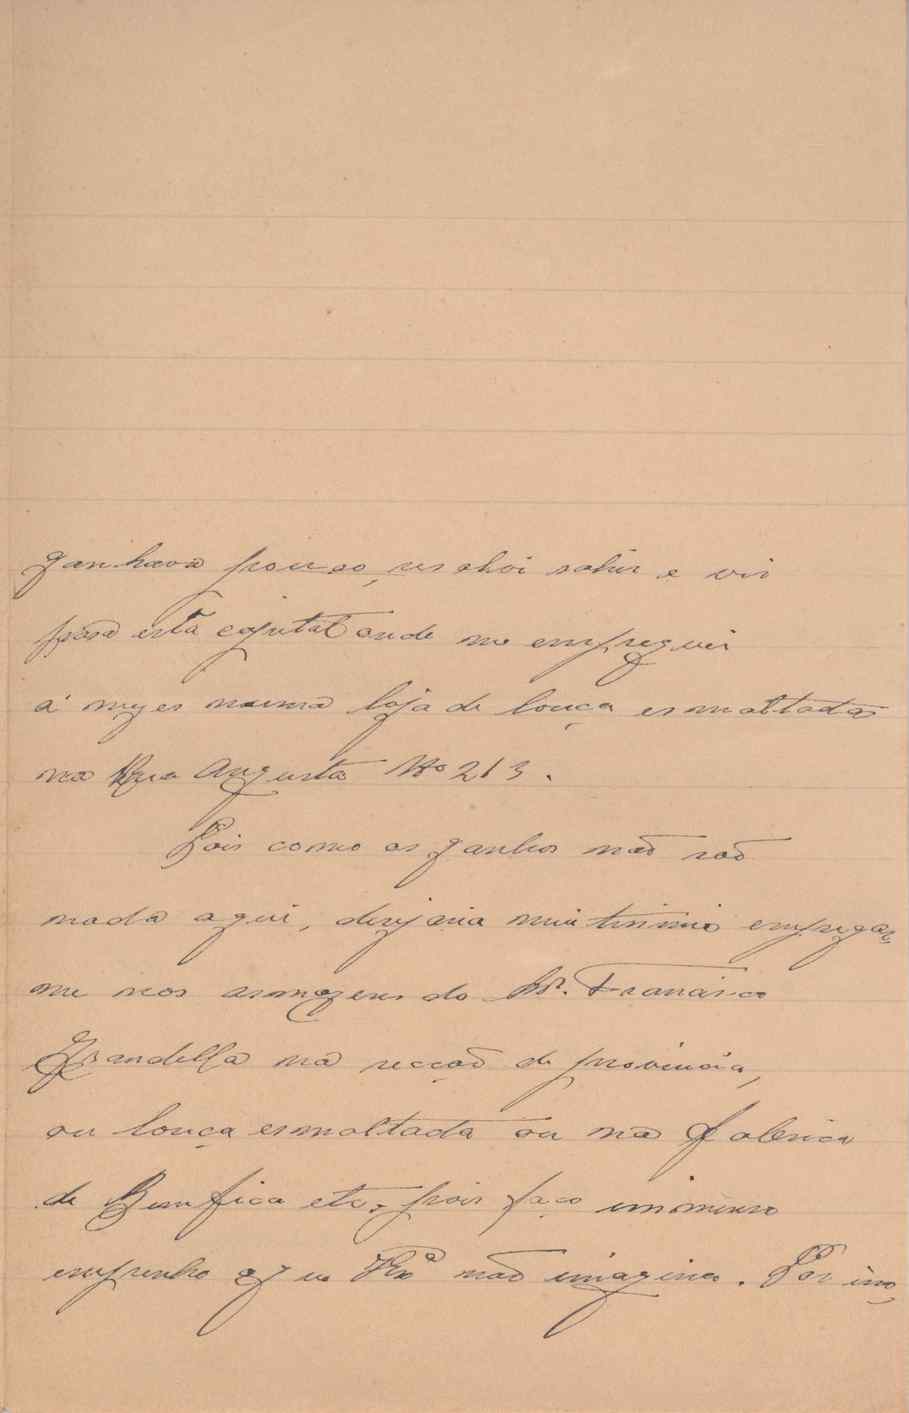 ganhava pouco, resolvi sahir e vir
para esta capital onde me empreguei
á mezes numa loja de louça esmaltada
na Rua Augusta No 213.
Pois como os ganhos não são
nada aqui, desejaria muitissimo empregar
me nos armazens do Sr. Francisco
Grandella na secção de provincia,
ou louça esmaltada ou na fabrica
de Bemfica etc, pois faço immenso
empenho q. V. Exª não imagina. Por isso